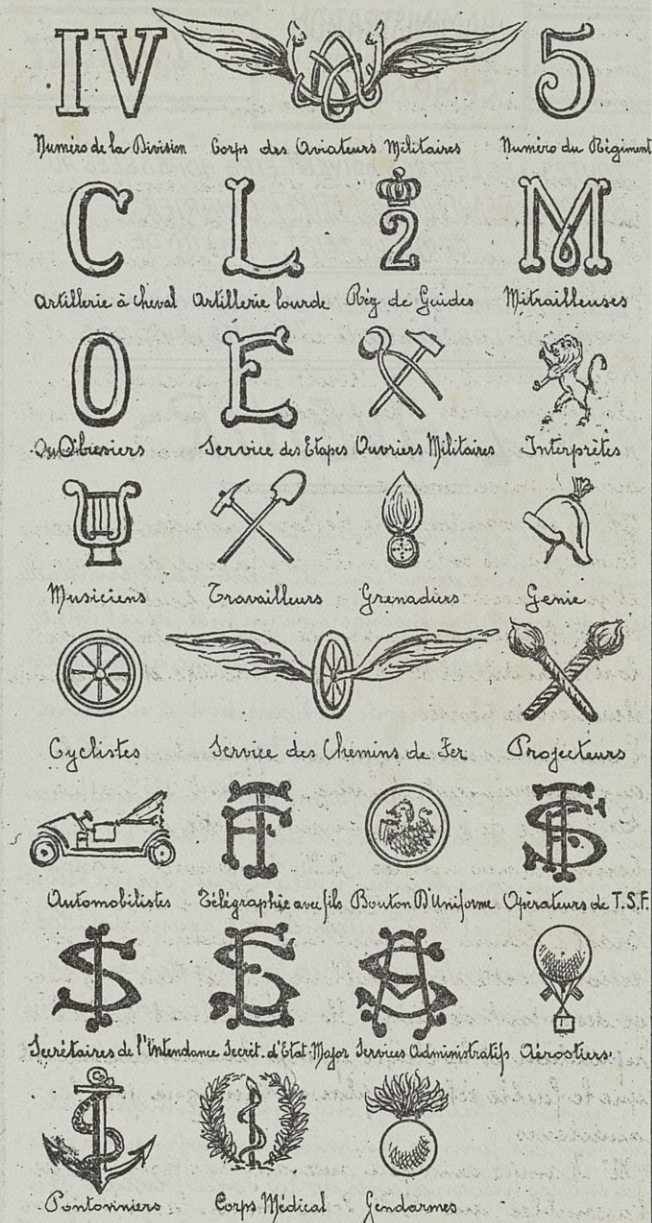 IV 5
Numéro de la Division Corps des Aviateurs Militaires Numéro du Régiment
C L 2 M
Artillerie à cheval Artillerie lourde Rég de Guides Mitrailleuses
O E
Obusiers Service des Etapes Ouvriers Militaires Interprètes
Musiciens Travailleurs Grenadiers Genie
Cyclistes Service des Chemins de Fer Projecteurs
Automobilistes Télégraphie avec fils Bouton D'Uniforme Opérateurs de T.S.F.
Secrétaires de l'Intendance Secrét. d'Etat-Major Services Administratifs Aérostiers
Pontonniers Corps Médical Gendarmes